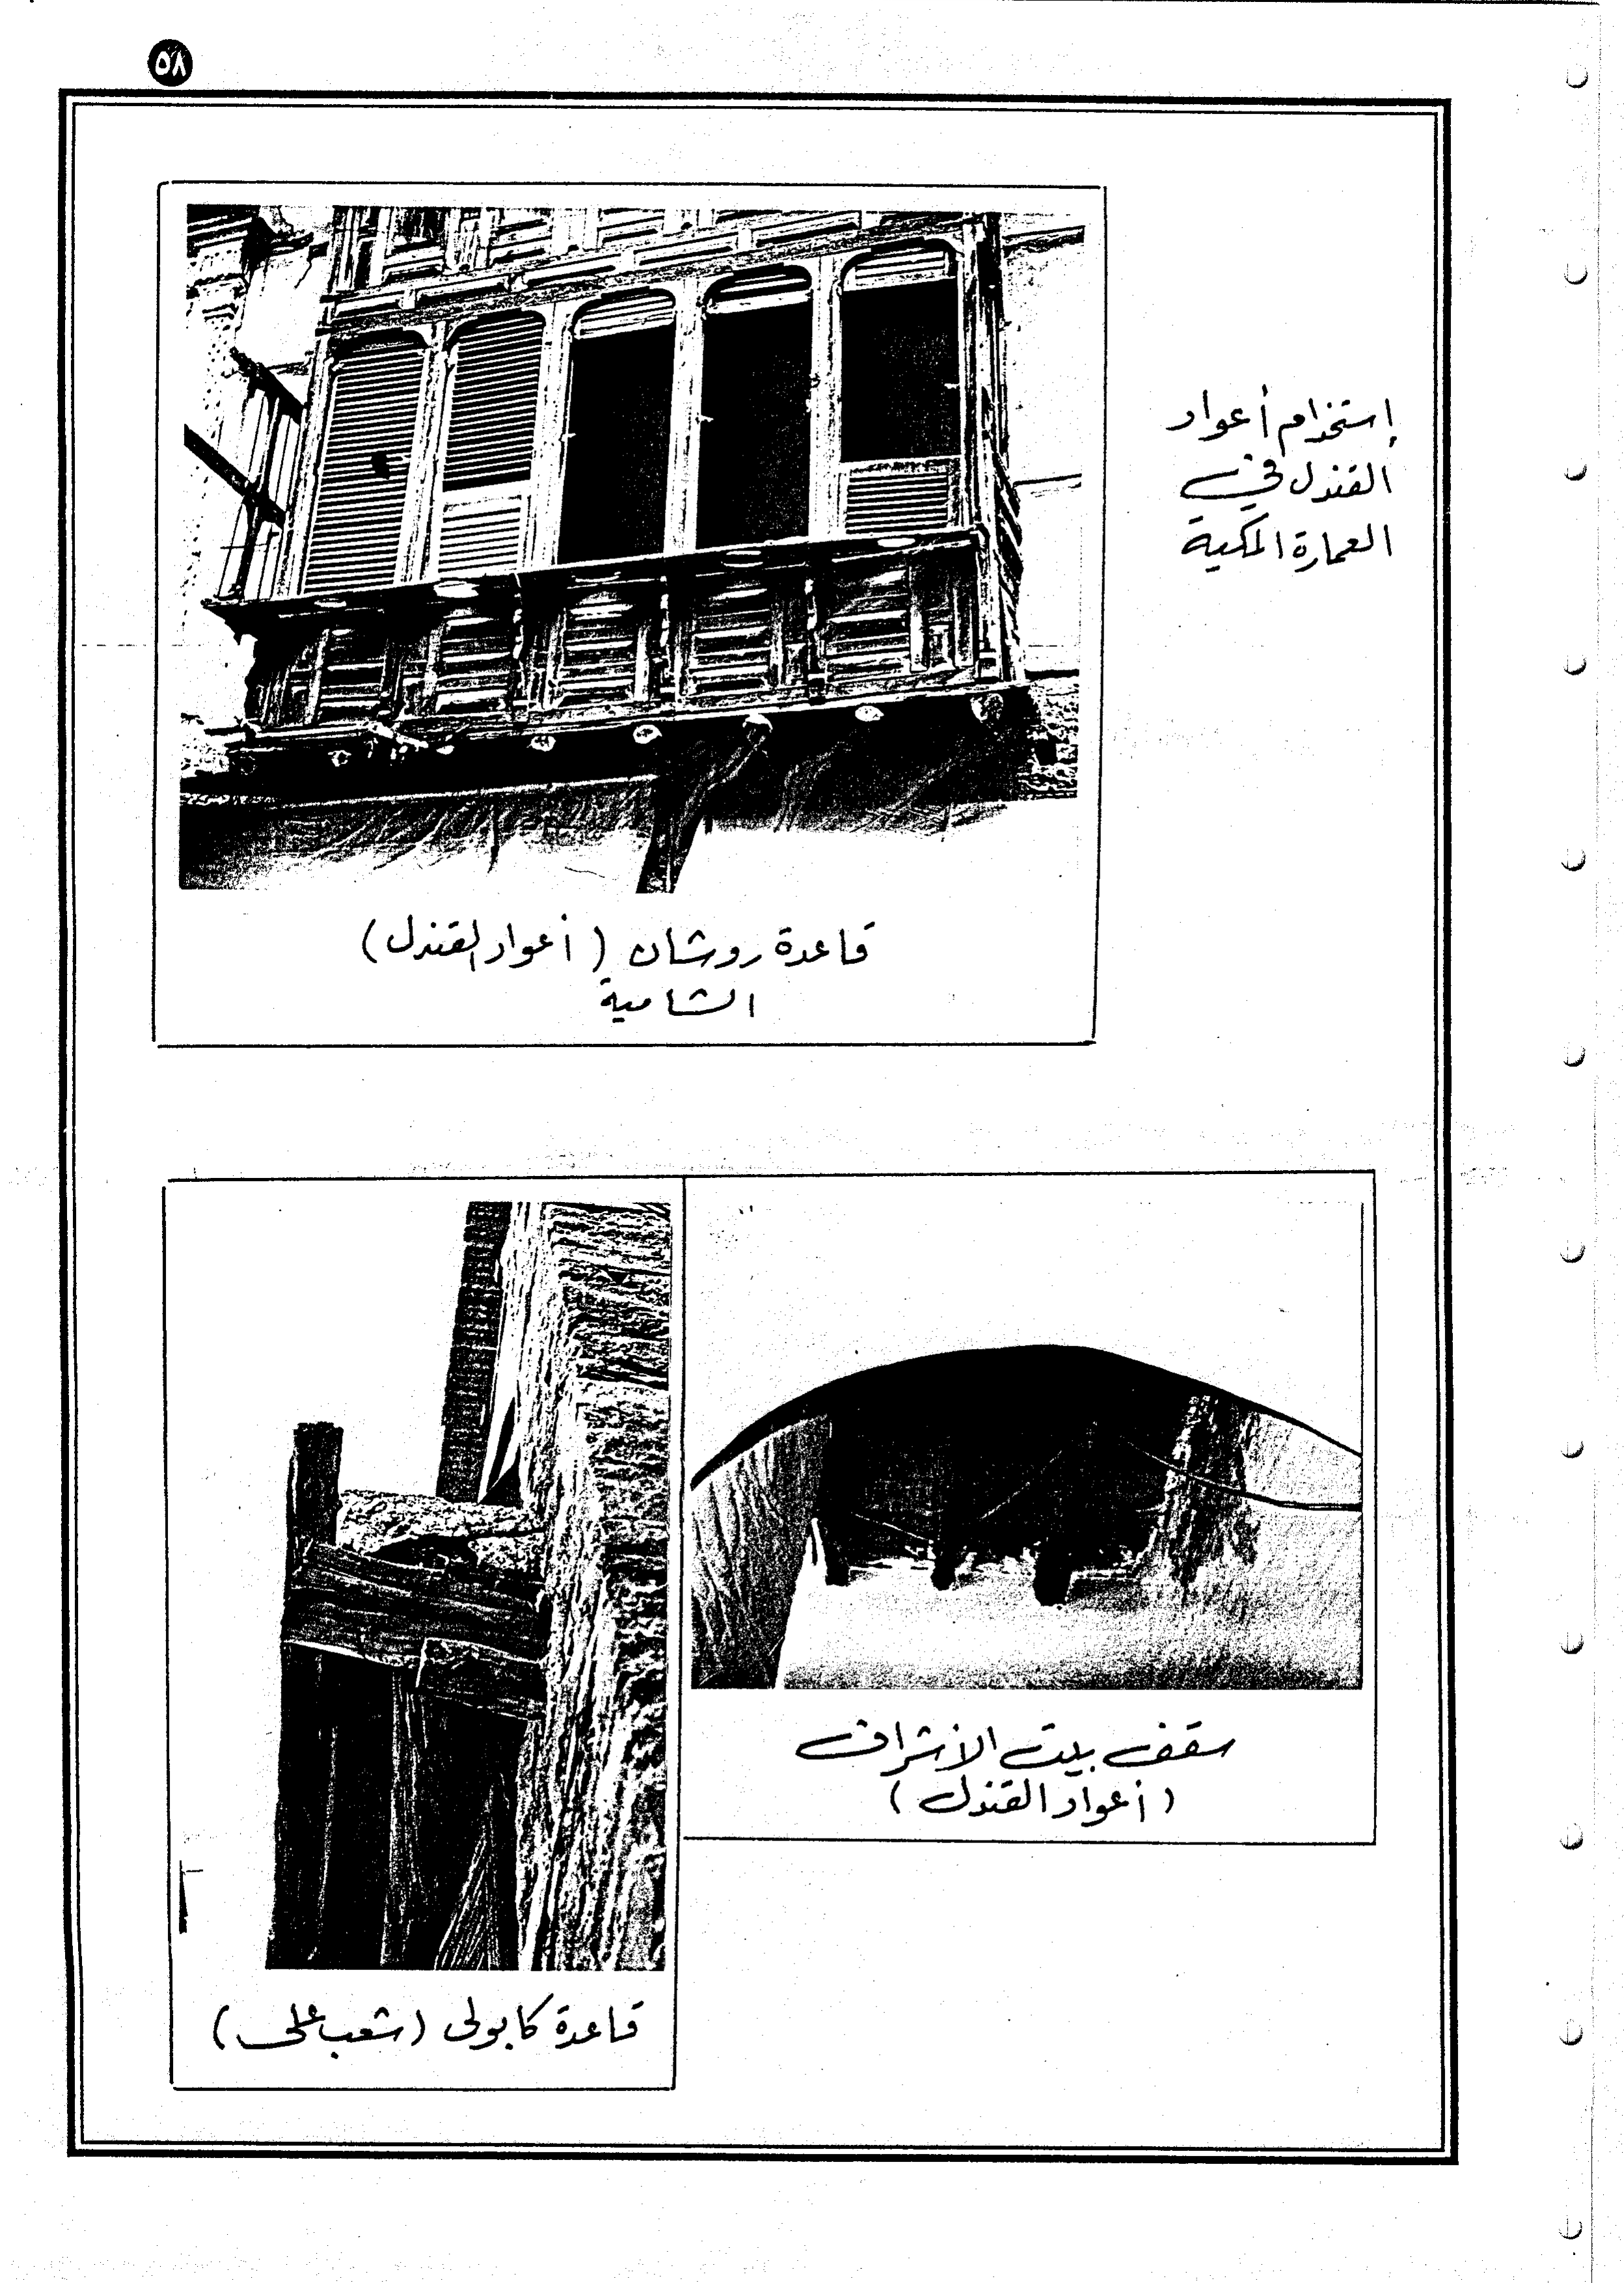 ٥٨
إستخدام أعواد
القندل في
العمارة المكية
قاعدة روشان (أعواد القندل)
الشامية
سقف بيت الأشراف
(أعواد القندل)
قاعدة كابولى (شعب على)